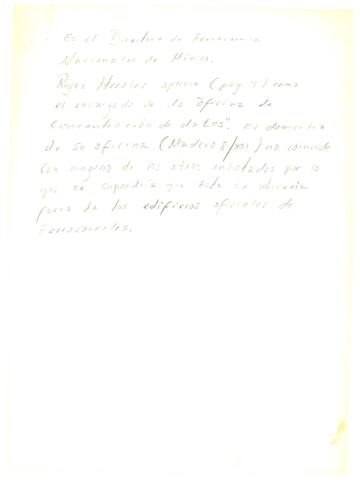 Es el Director de Ferrocarriles
Nacionales de México.
Reyes Heroles aparece (pag. 7) como
el encargado de la "oficina de
concentración de datos". El domicilio
de su oficina (Madero 8/) no coincide
con ninguno de los otros enlistados por lo
que se supondría que ésta se ubicaría
fuera de los edificios oficiales de
Ferrocarriles.